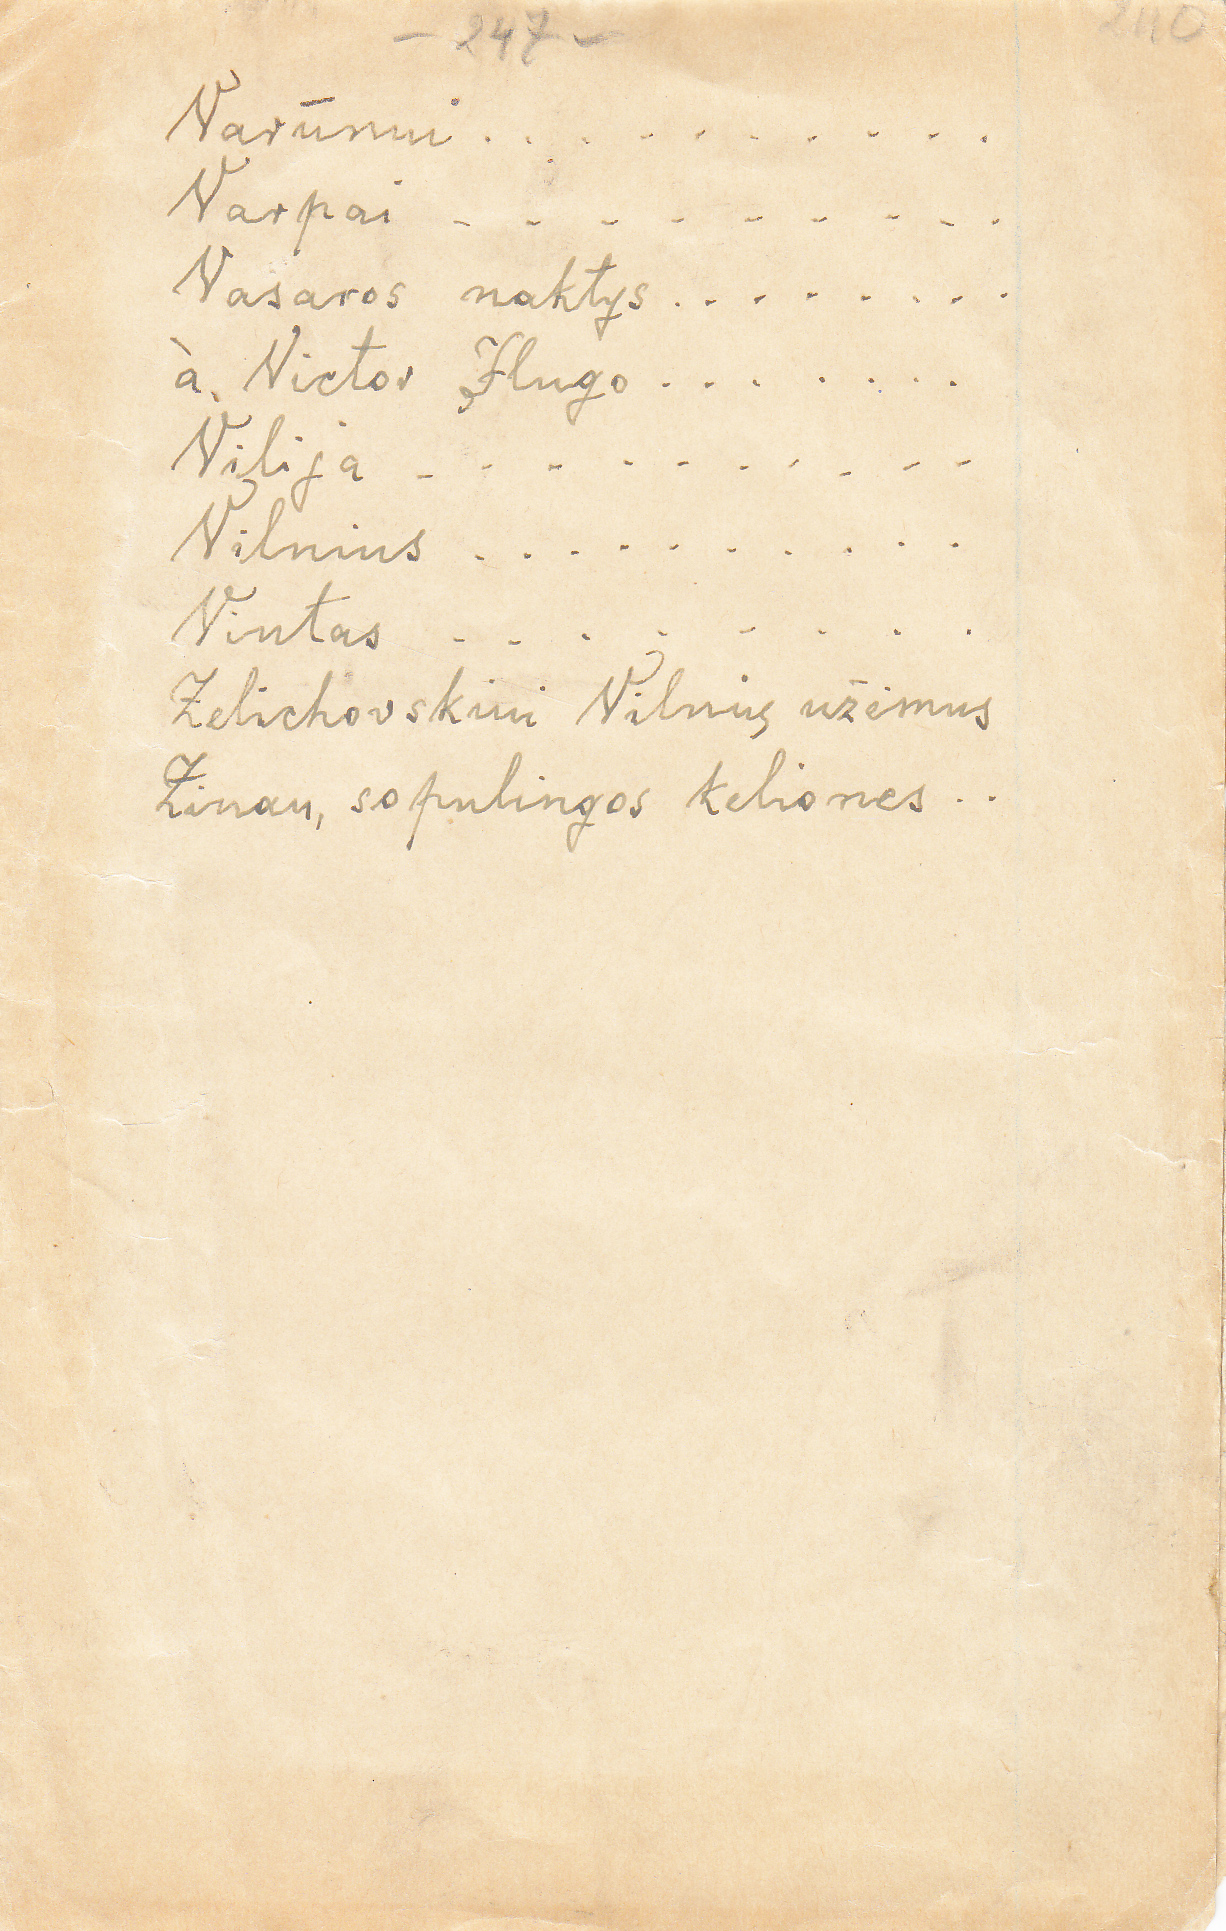 - 247 - 240
Varūnui . . . . . . . . . .
Varpai - - - - - - - - . .
Vasaros naktys . . . . . . . . .
à Victor Hugo . . . . . . . .
Vilija - - - - - - - - - -
Vilnius . . . . . . . . . .
Vintas - - - - - - - -
Želichovskiui Vilnių užėmus
Žinau, sopulingos keliones . .